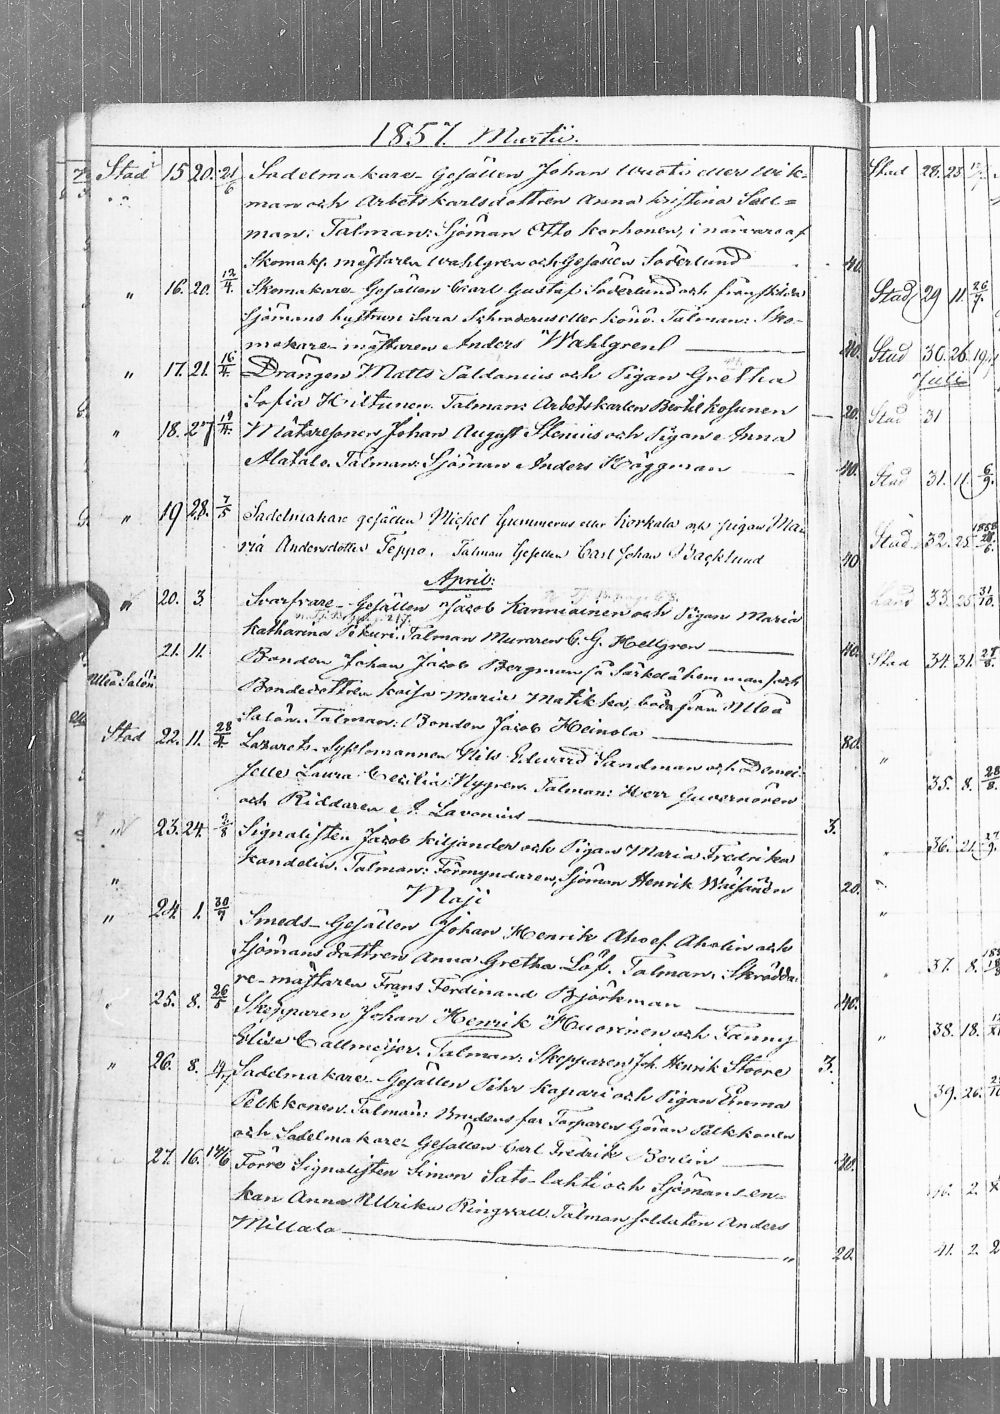 1857. Martii.
Stad 15 20. 21/6 Sadelmakare Gesällen Johan Wuoti eller Wik-
man och Arbetskarlsdottren Anna Kristina Sall=
man. Talman: Sjöman Otto Korhonen, i närvaro af
Skomak. mästaren Wahlgren och Gesällen Söderlund 40.
" 16. 20. 12/4. Skomakare Gesällen Carl Gustaf Söderlund och frånskilda
Sjömans hustrun Sara Schroderus eller Könö. Talman: Sko-
makare mästaren Anders Wahlgren 40.
" 17. 21. 16/4. Drängen Matts Paldanius och Pigan Gretha
Sofia Hiltunen. Talman: Arbetskarlen Bertil Kosunen 20.
" 18. 27 19/4. Mätaresonen Johan August Stenius och Pigan Anna
Alatalo. Talman: Sjöman Anders Häggman 40.
" 19 28. 7/5 Sadelmakare gesällen Michel Gummerus eller Korkala och pigan Ma-
ria Andersdotter Teppo. Talman Gesellen Carl Johan Backlund 40
April:
" 20. 3. Svarfvare Gesällen Jacob Kanniainen och Pigan Maria
Katharina Pekuri. Talman Muraren C. G. Hellgren 40.
21. 11. Bonden Johan Jacob Bergman få Särkelä hemman och
Uleå Salön Bondedottren Kaisa Maria Matikka, båda från Uleå
Salön. Talman: Bonden Jacob Heinola 80.
Stad 22. 11. 28/4. Lazarets Sysslomannen Nils Edward Sandman och Demoi-
selle Laura Cecilia Nygren. Talman: Herr Guvernören
och Riddaren A. Lavonius 3.
" 23. 24. 2/8 Signalisten Jacob Kiljander och Pigan Maria Fredrika
" Kandelin. Talman: Förmyndaren, Sjöman Henrik Wäisänen 20.
Maji
" 24. 1. 30/7 Smeds Gesällen Johan Henrik Ahoef Aholin och
Sjömansdottren Anna Gretha Löf. Talman: Skrädda-
re mästaren Frans Ferdinand Björkman 40.
" 25. 8. 26/5 Skepparen Johan Henrik Huorinen och Fanny
Elise Callmeijer. Talman: Skepparen Joh. Henrik Stoore 3.
" 26. 8. 14/ Sadelmakare Gesällen Pehr Kapari och Pigan Emma
Pelkkonen. Talman: Brudens far Torparen Göran Pelkkonen
och Sadelmakare Gesällen Carl Fredrik Berlin 40.
27. 16. 14/6 Förre Signalisten Simon Sato-lahti och Sjömans en=
kan Anna Ulrika Ringvall. Talman soldaten Anders
Millala " 20.
Stad 28. 23.
Stad 29 11. 26/7.
Stad 30. 26. 19/
Juli
Stad 31
Stad 31. 11. 6/9.
Stad 32. 25 1858
Land 33. 25 31/10.
Stad 34. 31. 27/8.
" 35. 8. 28/8.
" 36. 21. 27/9.
"
" 37. 8.
" 38. 18.
39. 26.
2.
41. 2.